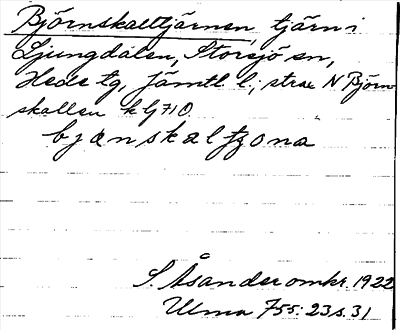 Björnskalltjärnen, tjärn i
Ljungdalen, Storsjö sn,
Hede tg, Jämtl l., strax N Björn-
skallen kg 710
bjønskaltjona
S. Åsander omkr. 1922
Ulma 755: 23 s. 31